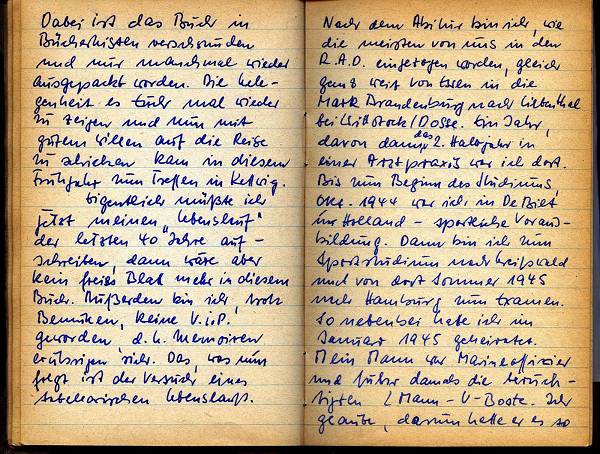 Dabei ist das Buch in
Bücherkisten verschwunden
und nur manchmal wieder
ausgepackt worden. Die Gele-
genheit es Euch mal wieder
zu zeigen und nun mit
gutem Willen auf die Reise
zu schicken kam in diesem
Frühjahr zum Treffen in Kettwig.
Eigentlich müßte ich
jetzt meinen „Lebenslauf"
der letzten 40 Jahre auf-
schreiben, dann wäre aber
kein freies Blatt mehr in diesem
Buch. Außerdem bin ich, trotz
Bemühen, keine V.I.P.
geworden d.h. Memoiren
erübrigen sich. Das, was nun
folgt ist der Versuch eines
tabellarischen Lebenslaufs.
Nach dem Abitur bin ich, wie
die meisten von uns in den
R.A.D. eingezogen worden, gleich
ganz weit von Essen in die
Mark Brandenburg nach Liebenthal
bei Wittstock/Dosse. Ein Jahr,
davon dann das 2. Halbjahr in
einer Arztpraxis war ich dort.
Bis zum Beginn des Studiums,
Okt. 1944 war ich in De Bilt
in Holland – sportliche Voraus-
bildung. Dann bin ich zum
Sportstudium nach Greifswald
und von dort Sommer 1945
nach Hamburg zum Examen.
So nebenbei habe ich im
Januar 1945 geheiratet.
Mein Mann war Marineoffizier
und fuhr damals die berüch-
tigten 1 Mann-U-Boote. Ich
glaube, darum hatte er es so